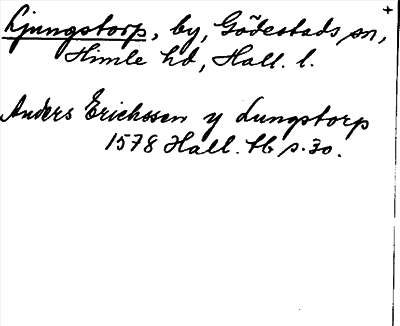 +
Ljungstorp, by, Gödestads sn,
Himle hd, Hall. l.
Anders Erichssen y Lungstorp
1578 Hall. tb s. 30.